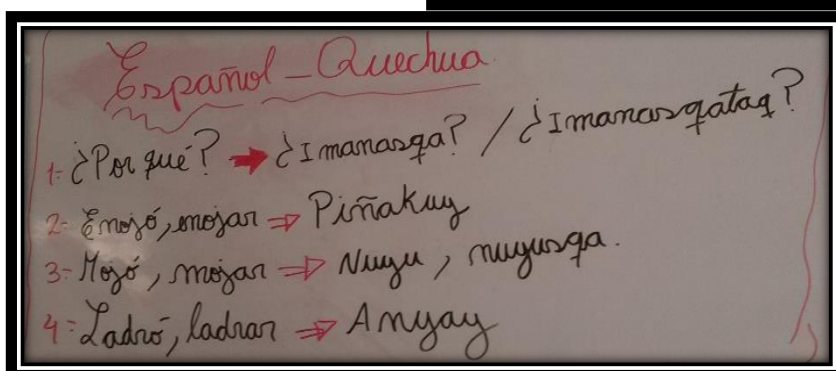 Español - Quechua
1- ¿Por qué? → ¿Imanasqa? / ¿Imanasqataq?
2- Enojó, enojar ⇒ Piñakuy
3- Mojó, mojar ⇒ Nuyu, nuyusqa.
4- Ladró, ladrar ⇒ Anyay